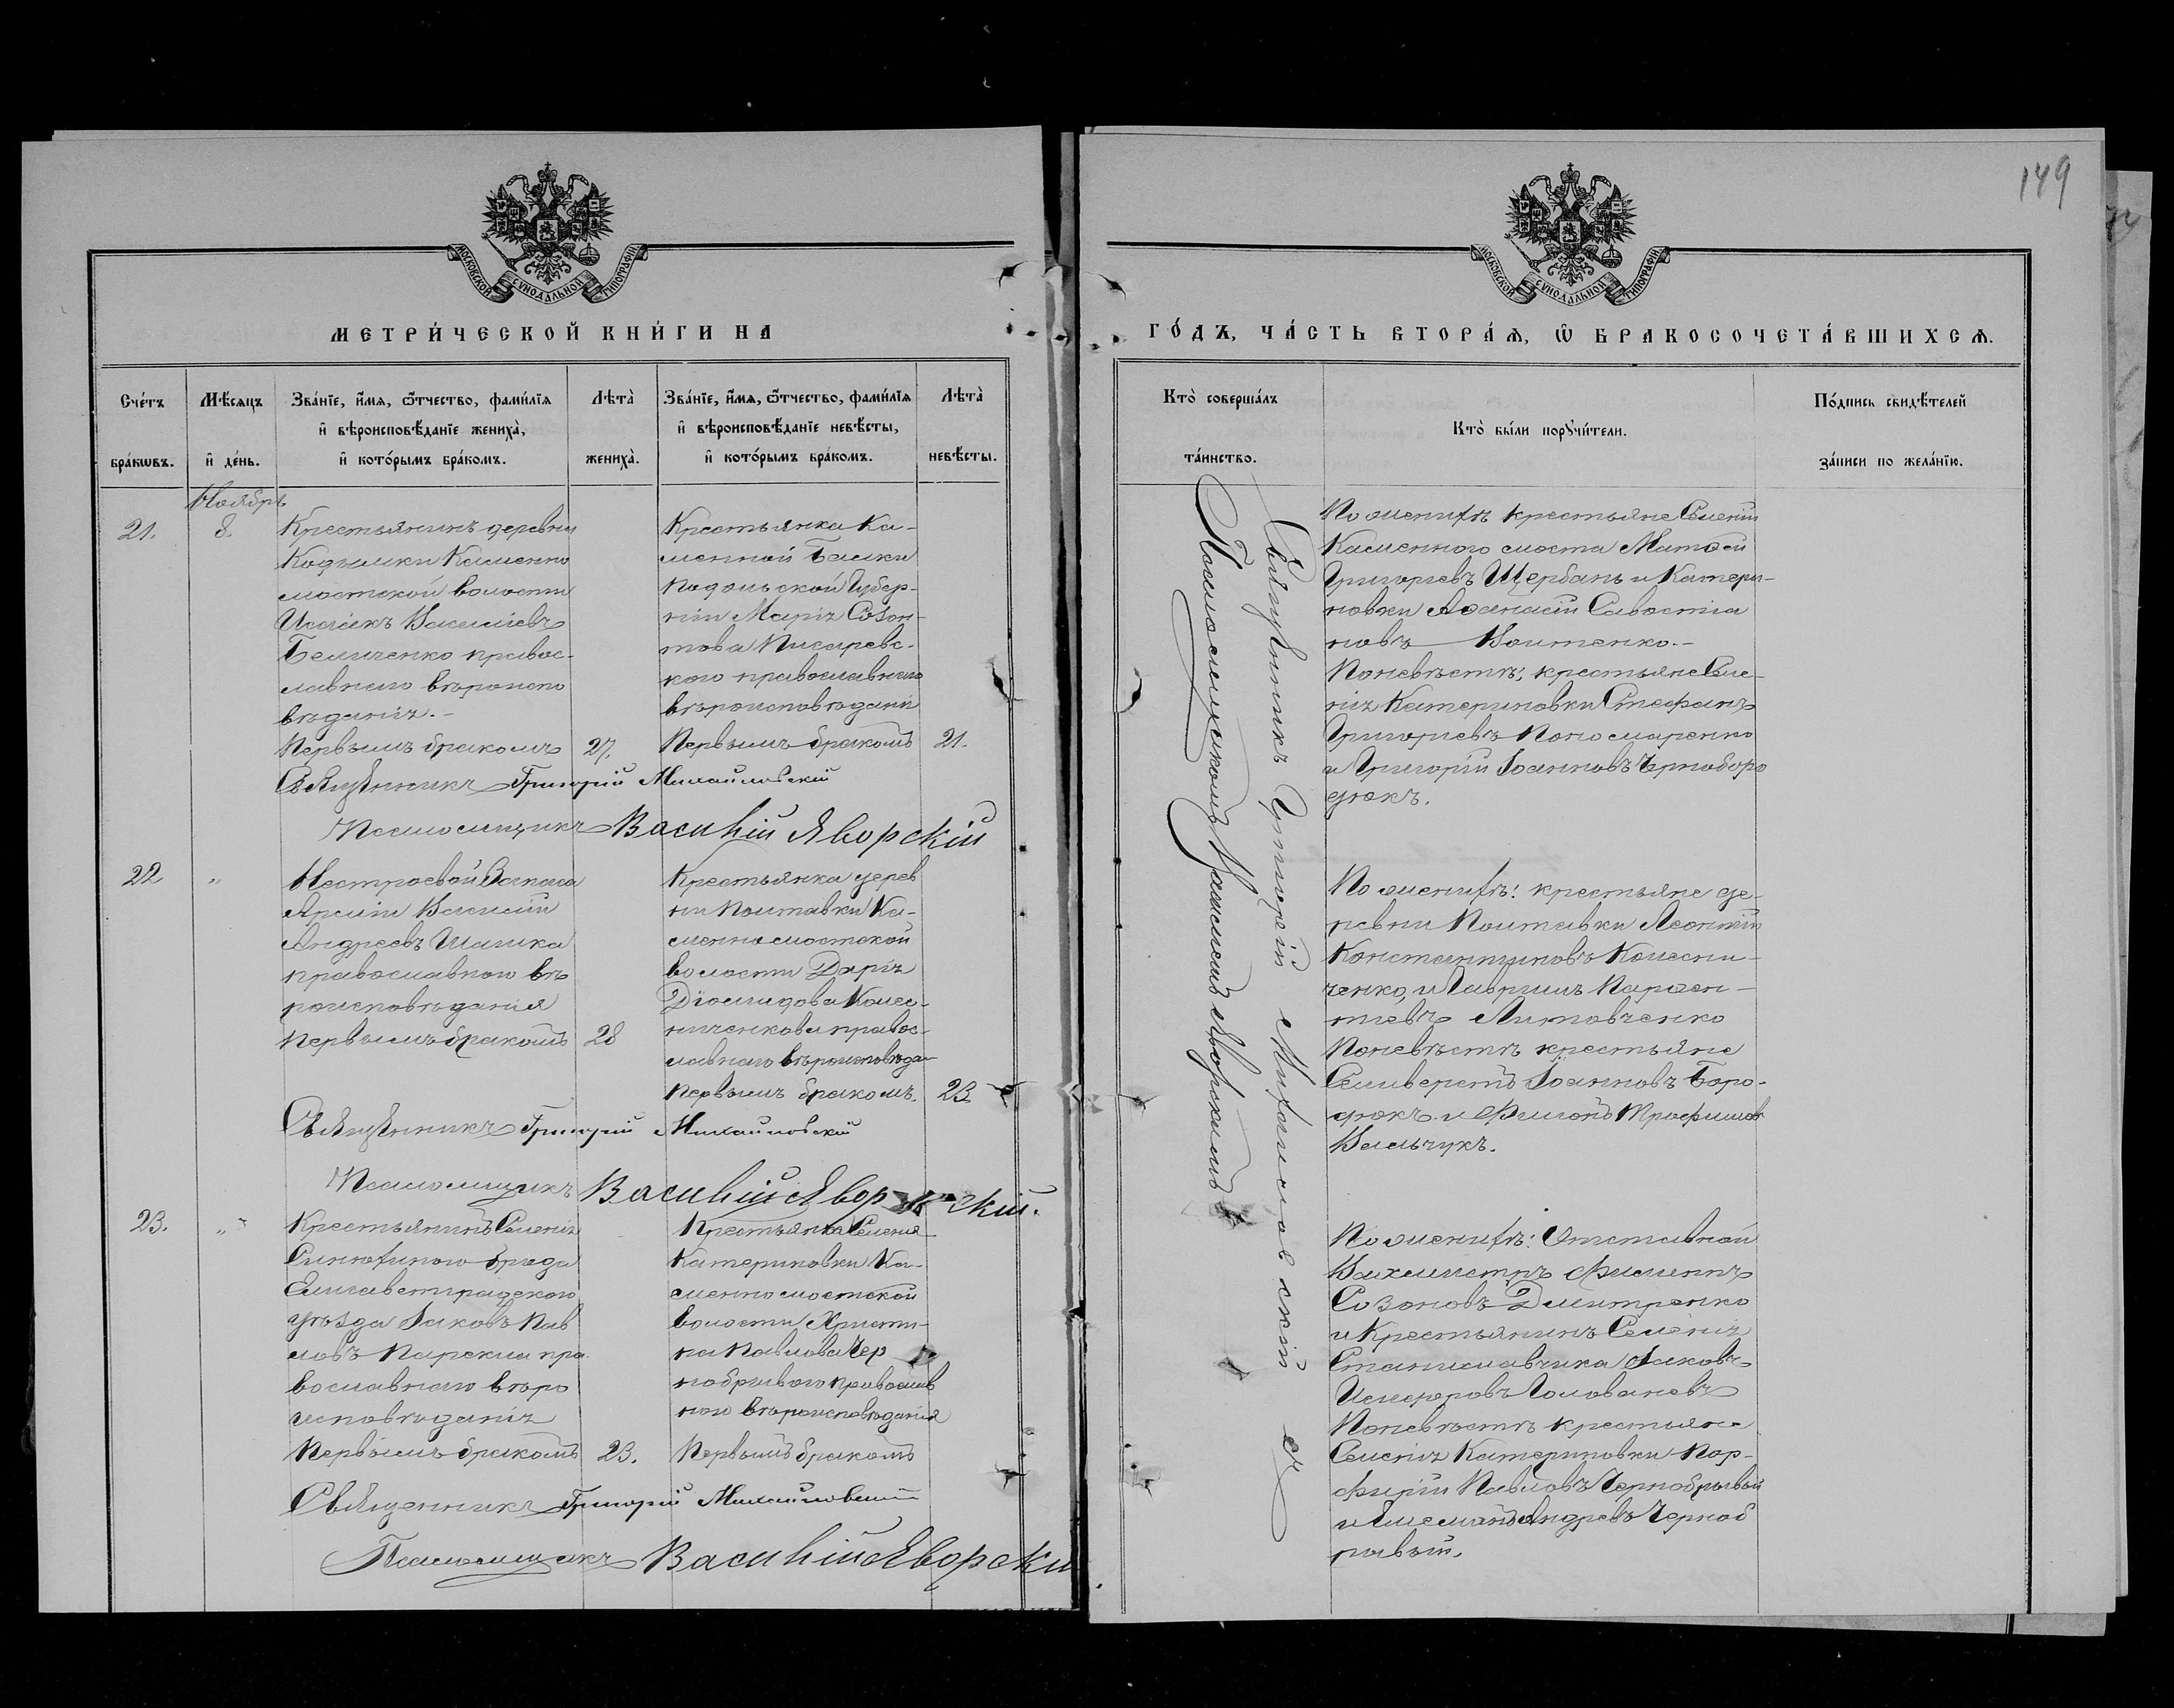 149
МОСКОВСКОЙ СУНОДАЛЬНОЙ ТИПОГРАФІИ
МЕТРИ́ЧЕСКОЙ КНИ́ГИ НА
Сче́тъ бра́кѡвъ.
Мѣ́сяцъ и҆ де́нь.
Зва́нїе, и҆́мѧ, ѻ҆́тчество, фами́лїѧ
и҆ вѣроисповѣ́данїе жениха̀,
и҆ кото́рымъ бра́комъ.
Лѣта̀ жениха̀.
Зва́нїе, и҆́мѧ, ѻ҆́тчество, фами́лїѧ
и҆ вѣроисповѣ́данїе невѣ́сты,
и҆ кото́рымъ бра́комъ.
Лѣта̀ невѣ́сты.
Ноябрь
21.
8.
Крестьянинъ деревни
Кодымки Каменно
мостской волости
Исаакъ Василіевъ
Беличенко правос-
лавнаго вѣроиспо
вѣданія.-
Первымъ бракомъ
27.
Крестьянка Ка-
менной Балки
Подольской Губер-
ніи Марія Созон-
това Писаревс-
кого православнаго
вѣроисповѣдани
Первымъ бракомъ
21.
Священникъ Григорій Михайловскій
Псаломщикъ Василій Яворскій
22
"
Нестроевой Запаса
Арміи Василій
Андреевъ Шашка
православного вѣ
роисповѣданія
Первымъ бракомъ
28
Крестьянка дерев
ни Полтавки Ка-
менномостской
волости Дарія
Діомидова Колес-
ниченкова правос-
лавнаго вѣроисповѣда-
Первымъ бракомъ.
23
Священникъ Григорій Михайловскій
Псаломщикъ Василій Яворскій.
23.
"
Крестьянинъ Селенія
Синюхиного Брода
Елисаветградского
уѣзда Іаковъ Пав
ловъ пра
вославнаго вѣро
исповѣданія
Первымъ бракомъ
23.
Крестьянка Селенія
Катериновки Ка-
менномостской
волости Христи-
на Павлова Чер
нобриваго православ
ного вѣроисповѣданія
Первымъ бракомъ
Священникъ Григорій Михайловскій
Псаломщикъ Василій Яворскі
МОСКОВСКОЙ СУНОДАЛЬНОЙ ТИПОГРАФІИ
ГО́ДЪ, ЧА́СТЬ ВТОРА́Ѧ, Ѡ҆ БРАКОСОЧЕТА́ВШИХСѦ.
Кто̀ соверша́лъ та́инство.
Кто̀ бы́ли порꙋчи́тели.
По́дпись свидѣ́телей за́писи по жела́нїю.
Священникъ Григорій Михайловскій съ
Псаломщикомъ Василіемъ Яворскимъ
По женихѣ крестьяне Селеній
Каменного моста Матѳей
Григорьевъ Щербань и Катери-
новки Аѳанасій Савостіа
новъ Войтенко.-
По невѣстѣ: крестьяне Селе-
нія Катериновки Стефанъ
Григорьевъ Пономаренко
и Григорій Іоанновъ Чернобо­ро
дюкъ.
По женихѣ: крестьяне де-
ревни Полтавки Леонтій
Константиновъ Колесни-
ченко, и Гавріилъ Парѳен-
тіевъ Литовченко
По невѣстѣ крестьяне
Селиверстъ Іоанновъ Боро-
дюкъ и Филонъ Трофимов
Вальчукъ.
По женихѣ: Отставной
Вахмистръ Филиппъ
Созоновъ Дмитренко
и Крестьянинъ Селенія
Станиславчика Іаковъ
Исидоровъ Голованевъ
По невѣстѣ крестьяне
Селенія Катериновки Пор-
фирій Павловъ Чернобрывый
и Андреевъ Черноб
рывый.